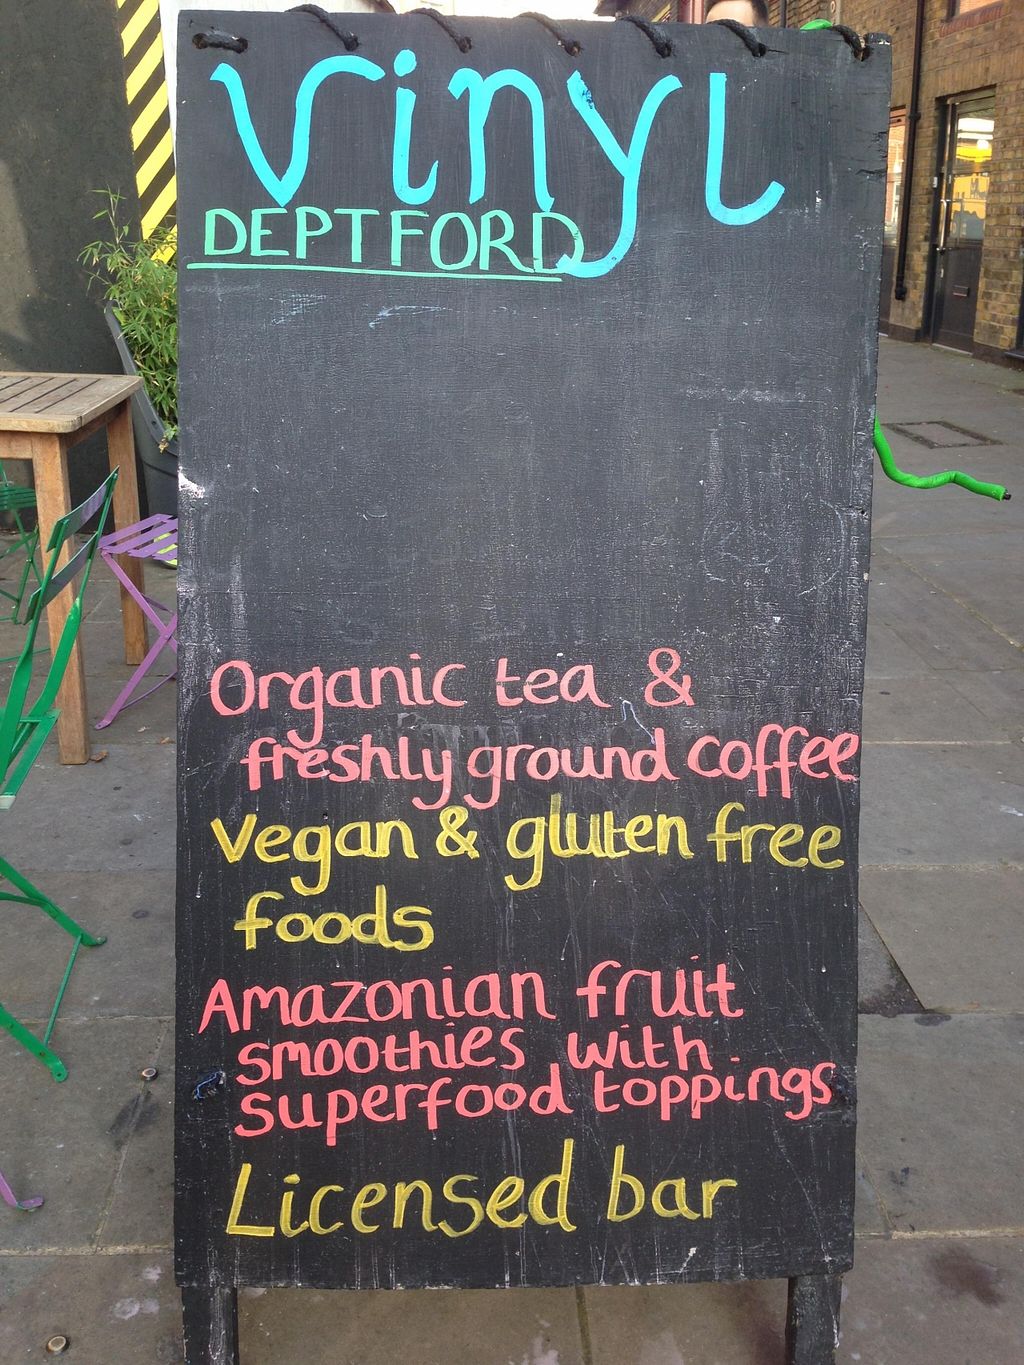 Vinyl
DEPTFORD
Organic tea &
freshly ground coffee
Vegan & gluten free
foods
Amazonian fruit
smoothies with
superfood toppings
Licensed bar